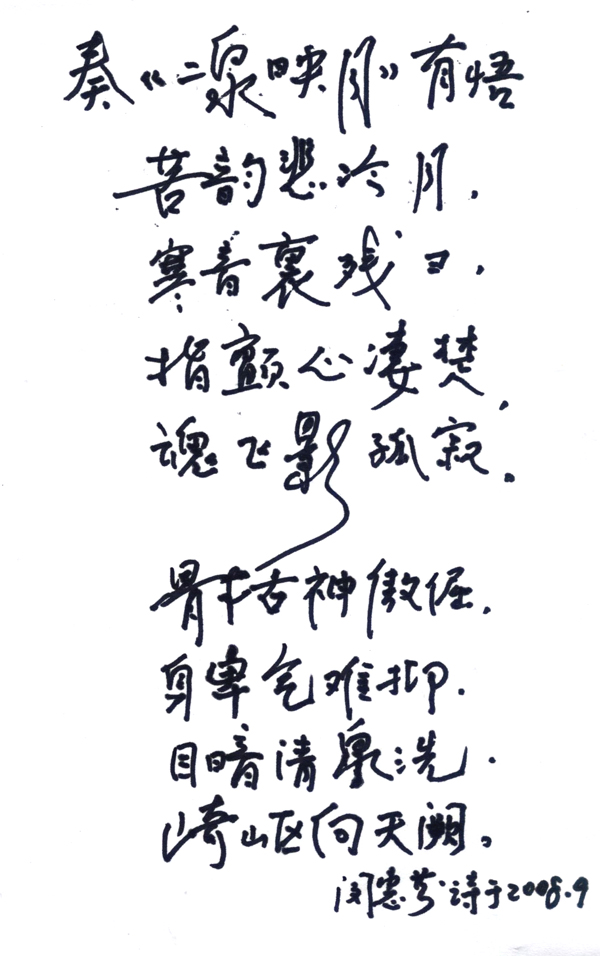 奏《二泉映月》有悟
苦韵悲冷月，
寒音裹残日，
指颤心凄楚，
魂飞影孤寂。
骨枯神傲倔，
身卑气难抑．
目暗清泉洗．
崎岖向天阙。
闵惠芬诗于2008.9